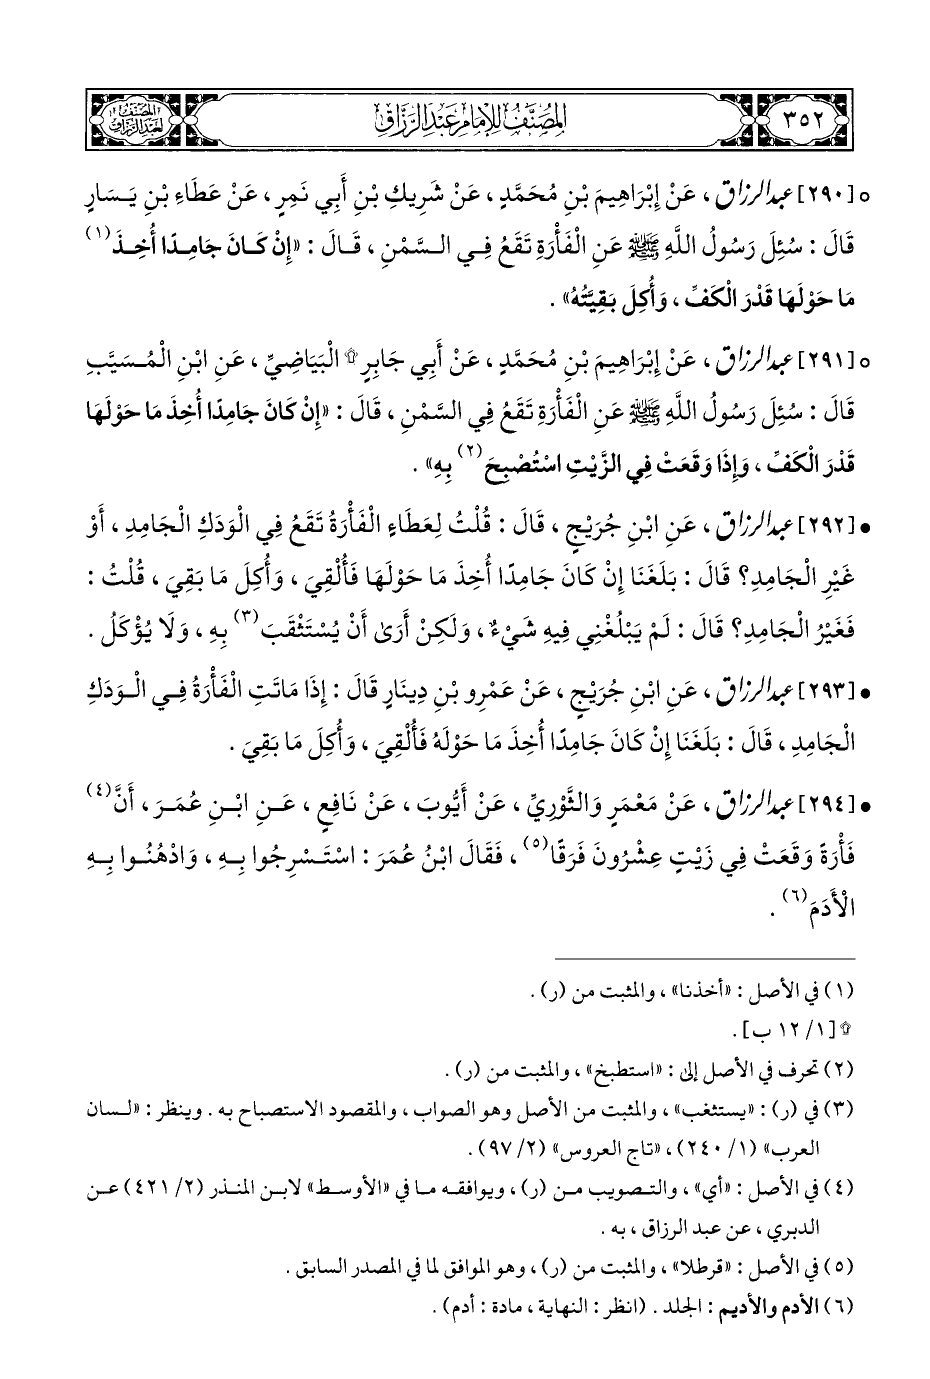 ٣٥٢
المصنف للإمام عبد الرزاق
المصنف لعبد الرزاق
○ [٢٩٠] عبد الرزاق ، عَنْ إِبْرَاهِيمَ بْنِ مُحَمَّدٍ ، عَنْ شَرِيكِ بْنِ أَبِي نَمِرٍ ، عَنْ عَطَاءِ بْنِ يَسَارٍ
قَالَ : سُئِلَ رَسُولُ اللَّهِ ﷺ عَنِ الْفَأْرَةِ تَقَعُ فِي السَّمْنِ ، قَالَ : «إِنْ كَانَ جَامِدًا أُخِذَ (١)
مَا حَوْلَهَا قَدْرَ الْكَفِّ ، وَأُكِلَ بَقِيَّتُهُ» .
○ [٢٩١] عبد الرزاق ، عَنْ إِبْرَاهِيمَ بْنِ مُحَمَّدٍ ، عَنْ أَبِي جَابِرٍ ۩ الْبَيَاضِيِّ ، عَنِ ابْنِ الْمُسَيَّبِ
قَالَ : سُئِلَ رَسُولُ اللَّهِ ﷺ عَنِ الْفَأْرَةِ تَقَعُ فِي السَّمْنِ ، قَالَ : «إِنْ كَانَ جَامِدًا أُخِذَ مَا حَوْلَهَا
قَدْرَ الْكَفِّ ، وَإِذَا وَقَعَتْ فِي الزَّيْتِ اسْتُصْبِحَ (٢) بِهِ» .
● [٢٩٢] عبد الرزاق ، عَنِ ابْنِ جُرَيْجٍ ، قَالَ : قُلْتُ لِعَطَاءٍ الْفَأْرَةُ تَقَعُ فِي الْوَدَكِ الْجَامِدِ ، أَوْ
غَيْرِ الْجَامِدِ؟ قَالَ : بَلَغَنَا إِنْ كَانَ جَامِدًا أُخِذَ مَا حَوْلَهَا فَأُلْقِيَ ، وَأُكِلَ مَا بَقِيَ ، قُلْتُ :
فَغَيْرُ الْجَامِدِ؟ قَالَ : لَمْ يَبْلُغْنِي فِيهِ شَيْءٌ ، وَلَكِنْ أَرَى أَنْ يُسْتَثْقَبَ (٣) بِهِ ، وَلَا يُؤْكَلُ .
● [٢٩٣] عبد الرزاق ، عَنِ ابْنِ جُرَيْجٍ ، عَنْ عَمْرِو بْنِ دِينَارٍ قَالَ : إِذَا مَاتَتِ الْفَأْرَةُ فِي الْوَدَكِ
الْجَامِدِ ، قَالَ : بَلَغَنَا إِنْ كَانَ جَامِدًا أُخِذَ مَا حَوْلَهُ فَأُلْقِيَ ، وَأُكِلَ مَا بَقِيَ .
● [٢٩٤] عبد الرزاق ، عَنْ مَعْمَرٍ وَالثَّوْرِيِّ ، عَنْ أَيُّوبَ ، عَنْ نَافِعٍ ، عَنِ ابْنِ عُمَرَ ، أَنَّ (٤)
فَأْرَةً وَقَعَتْ فِي زَيْتٍ عِشْرُونَ فَرَقًا (٥) ، فَقَالَ ابْنُ عُمَرَ : اسْتَسْرِجُوا بِهِ ، وَادْهُنُوا بِهِ
الْأَدَمَ (٦) .
(١) في الأصل : «أخذنا» ، والمثبت من (ر) .
۩ [١/ ١٢ ب] .
(٢) تحرف في الأصل إلى : «استطبخ» ، والمثبت من (ر) .
(٣) في (ر) : «يستثغب» ، والمثبت من الأصل وهو الصواب ، والمقصود الاستصباح به . وينظر : «لسان
العرب» (١/ ٢٤٠) ، «تاج العروس» (٢/ ٩٧) .
(٤) في الأصل : «أي» ، والتصويب من (ر) ، ويوافقه ما في «الأوسط» لابن المنذر (٢/ ٤٢١) عن
الدبري ، عن عبد الرزاق ، به .
(٥) في الأصل : «قرطلا» ، والمثبت من (ر) ، وهو الموافق لما في المصدر السابق .
(٦) الأدم والأديم : الجلد . (انظر : النهاية ، مادة : أدم) .